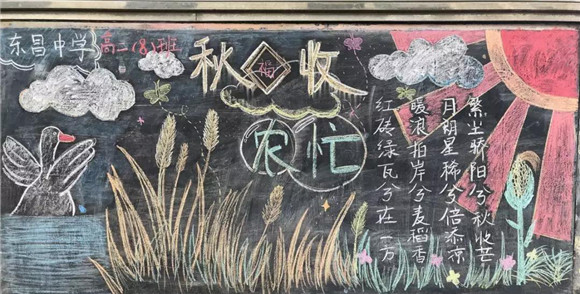 东昌中学 高二(8)班
秋福收
农忙
尘骄阳兮秋收芒
月朗星稀兮倍添凉
暖浪拍岸兮麦稻香
红砖绿瓦兮在一方